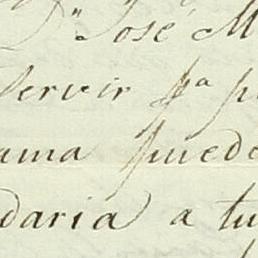 Dn José M
servir pa p
ama puede
daria a tu